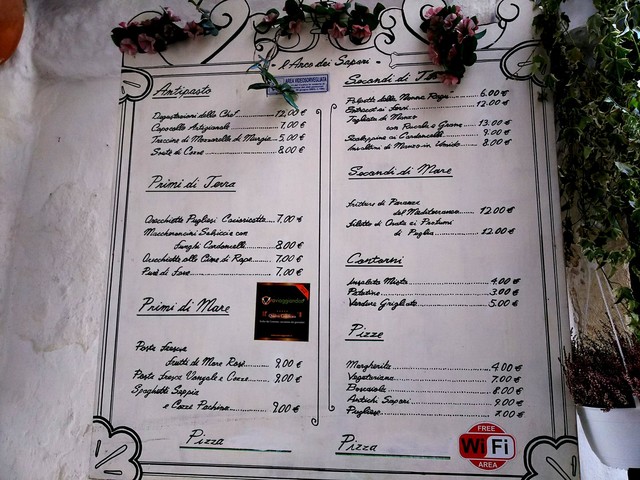 l'Arco dei Sapori
AREA VIDEOSORVEGLIATA
Antipasto
Degustazioni dello Chef 12,00 €
Capocollo Artigianale 7,00 €
Treccine di Mozzarella di Murgia 5,00 €
Sautè di Cozze 8,00 €
Primi di Terra
Orecchiette Pugliesi Cacioricotta 7,00 €
Maccheroncini Salsiccia e
Funghi Cardoncelli 8,00 €
Orecchiette alle Cime di Rape 7,00 €
Purè di Fave 7,00 €
Primi di Mare
Pasta Fresca
Frutti di Mare Rosè 9,00 €
Pasta Fresca Vongole e Cozze 9,00 €
Spaghetti Seppia
e Cozze Pachino 9,00 €
Pizza
Secondi di
Polpette della Nonna Rosa 6.00 €
12.00 €
Tagliata di Manzo
con Rucola e Grana 13.00 €
Scaloppine ai Cardoncelli 9.00 €
Involtini di Manzo in Umido 8.00 €
Secondi di Mare
Frittura di Paranza
del Mediterraneo 12.00 €
Filetto di Orata ai Profumi
di Puglia 12.00 €
Contorni
Insalata Mista 4.00 €
Patatine 3.00 €
Verdure Grigliate 5.00 €
Pizze
Margherita 4.00 €
Vegetariana 7.00 €
Boscaiola 8.00 €
Antichi Sapori 9.00 €
Pugliese 7.00 €
Pizza
FREE
Wi Fi
AREA